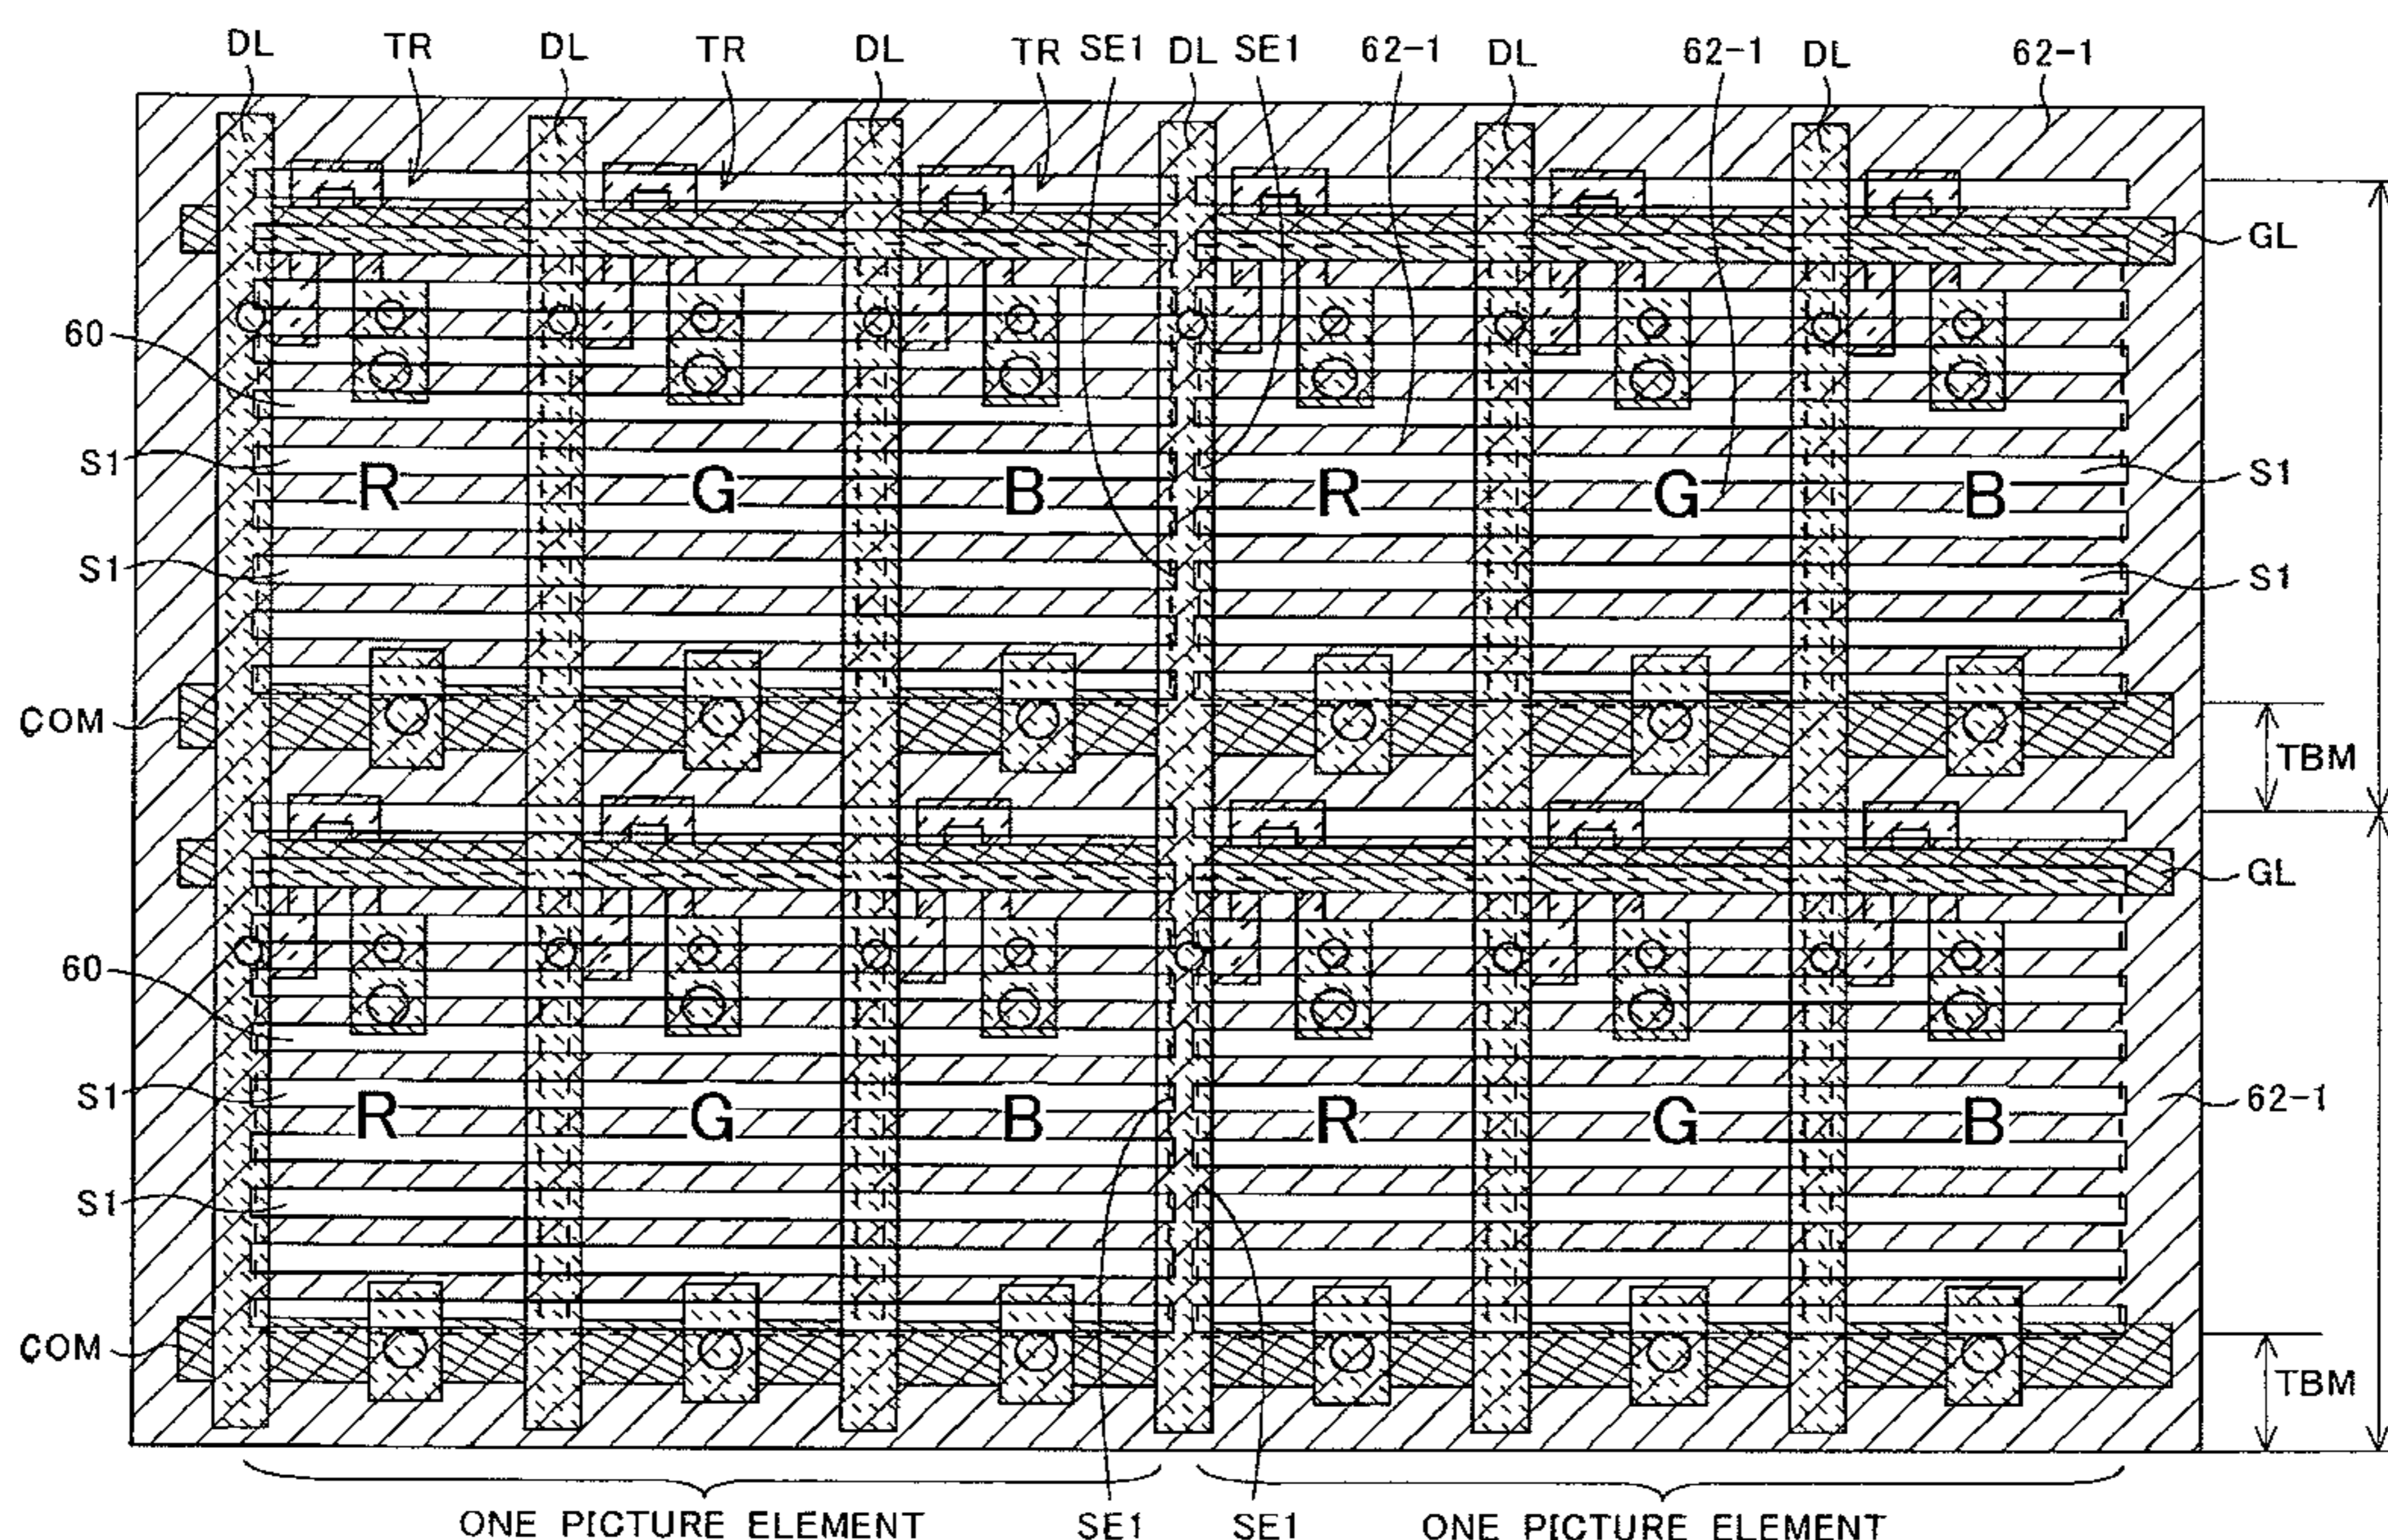 DL TR DL TR DL TR SE1 DL SE1 62-1 DL 62-1 DL 62-1
GL
60
S1 R G B R G B S1
S1 S1
COM
TBM
GL
60
S1 R G B R G B 62-1
S1
COM
TBM
ONE PICTURE ELEMENT SE1 SE1 ONE PICTURE ELEMENT